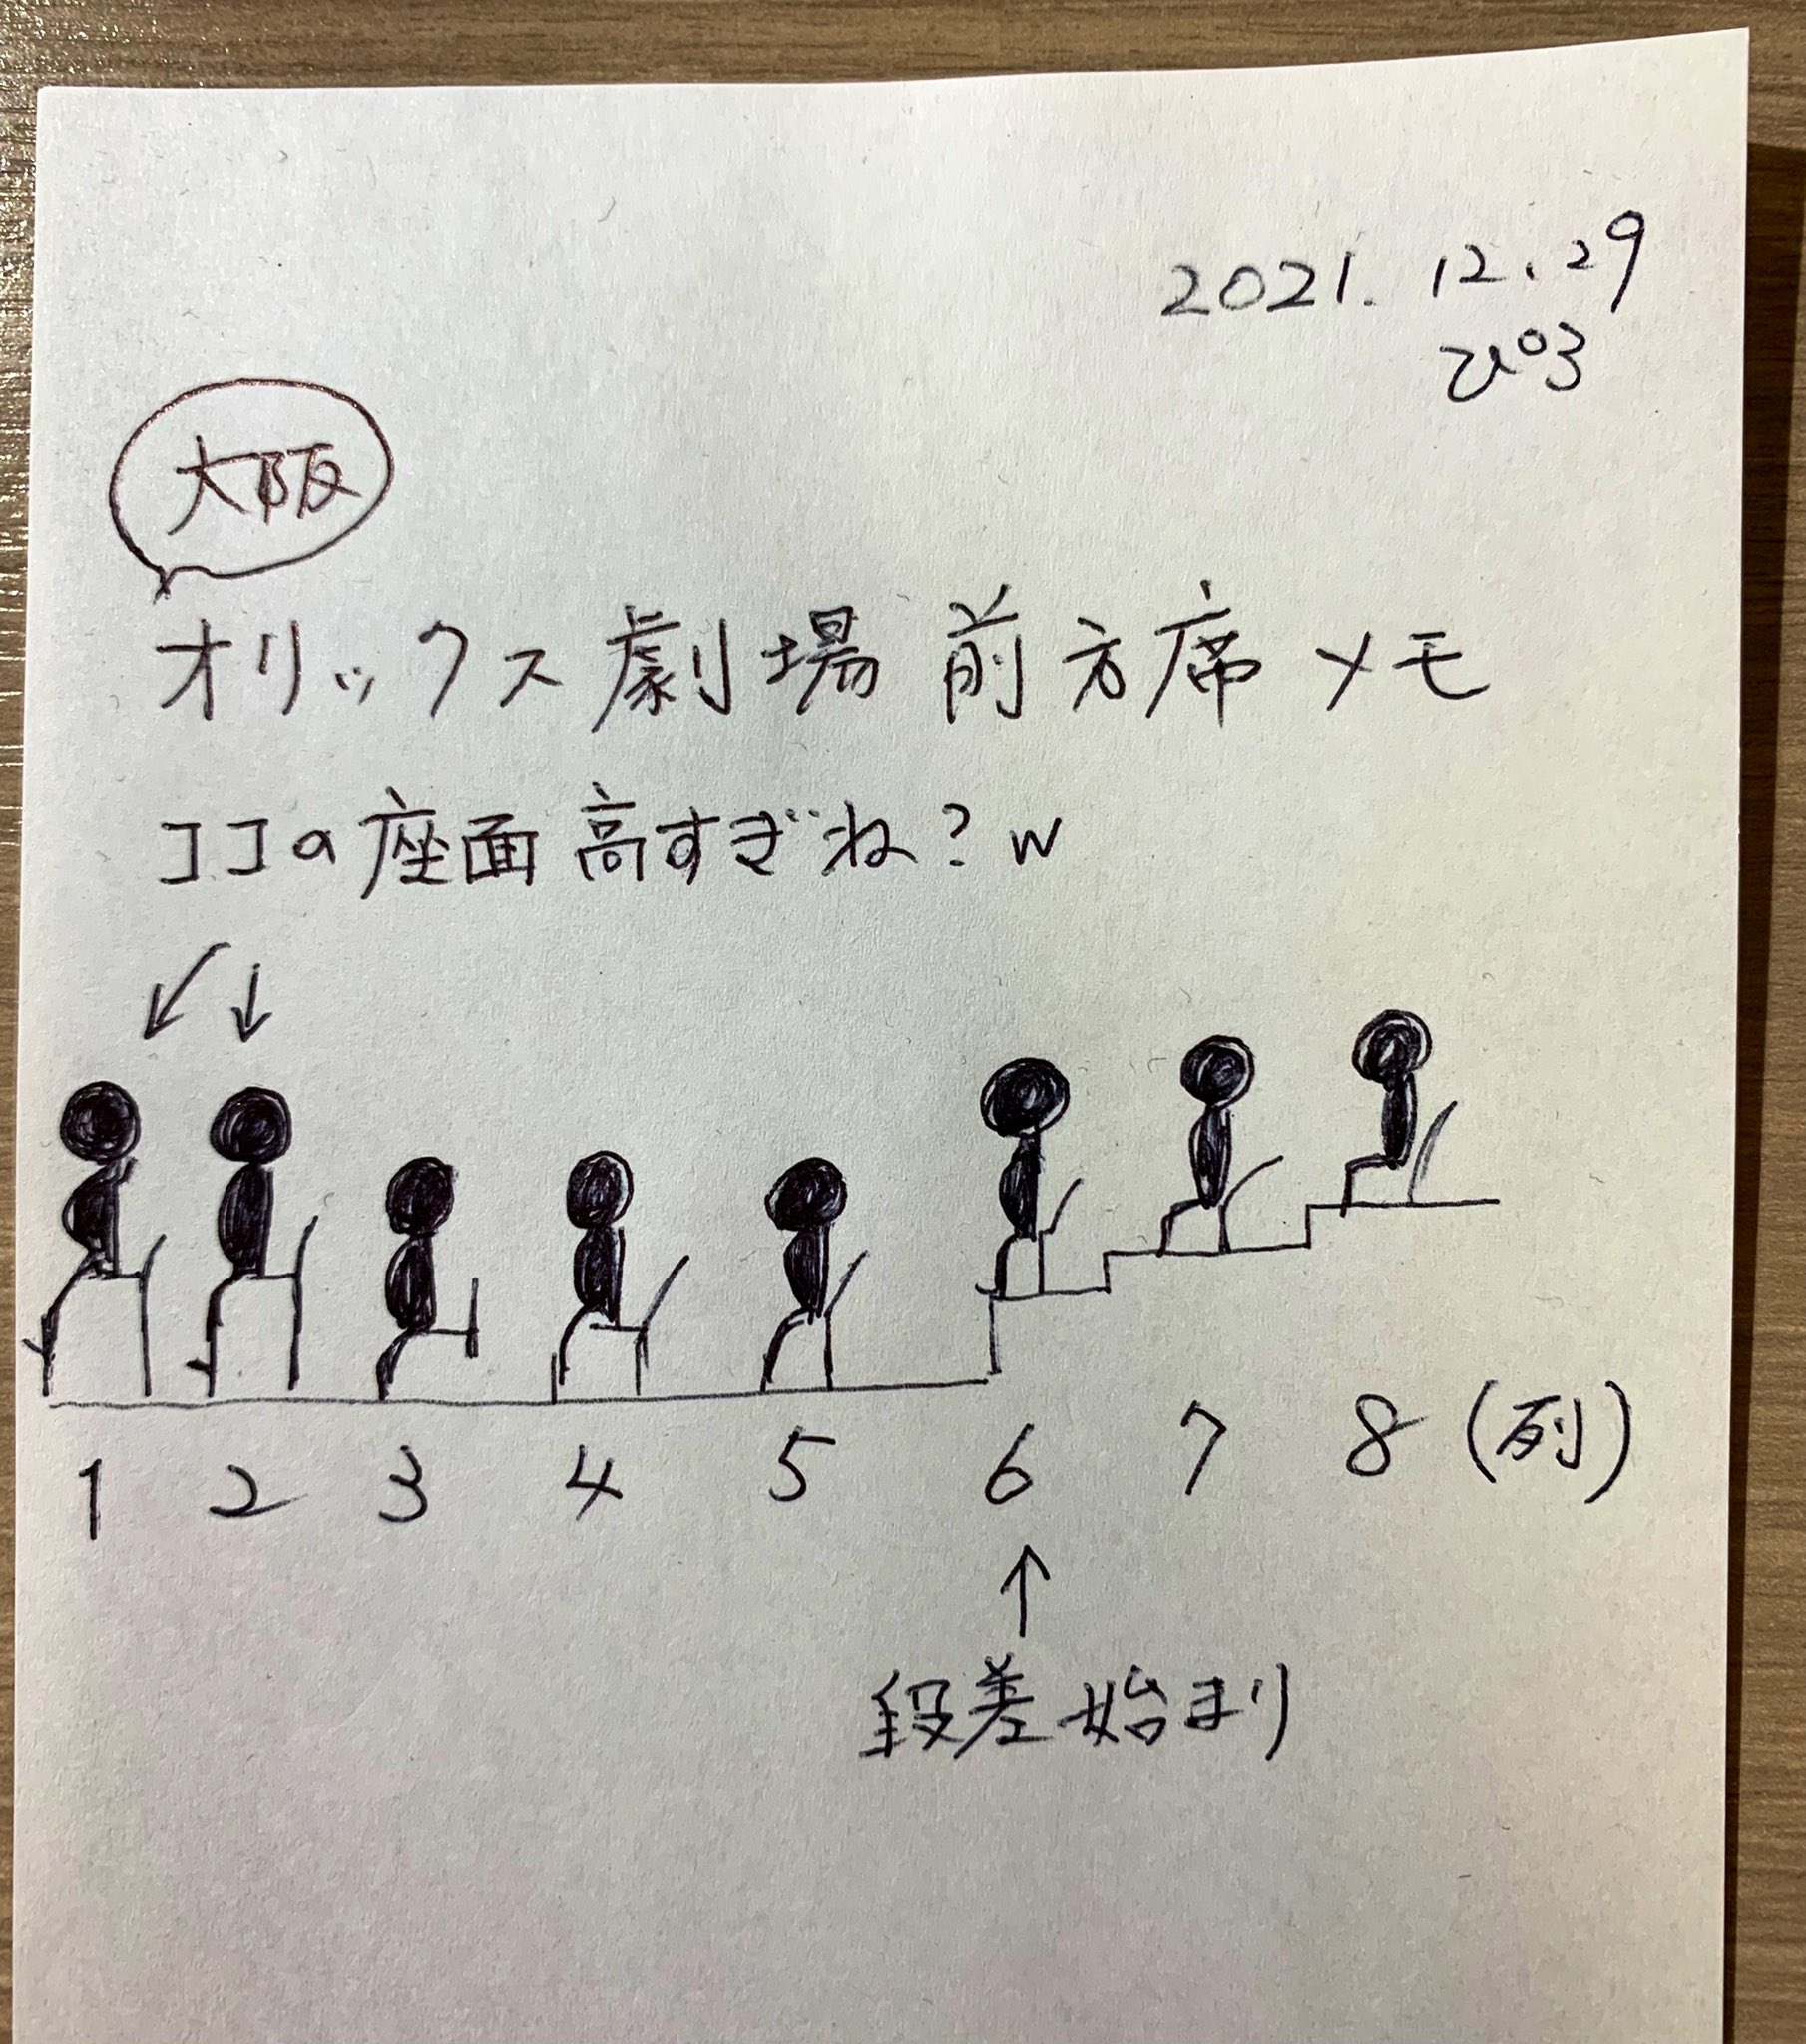 2021. 12. 29
ぴろ
大阪
オリックス劇場 前方席メモ
ココの座面高すぎね？w
1 2 3 4 5 6 7 8 (列)
段差始まり